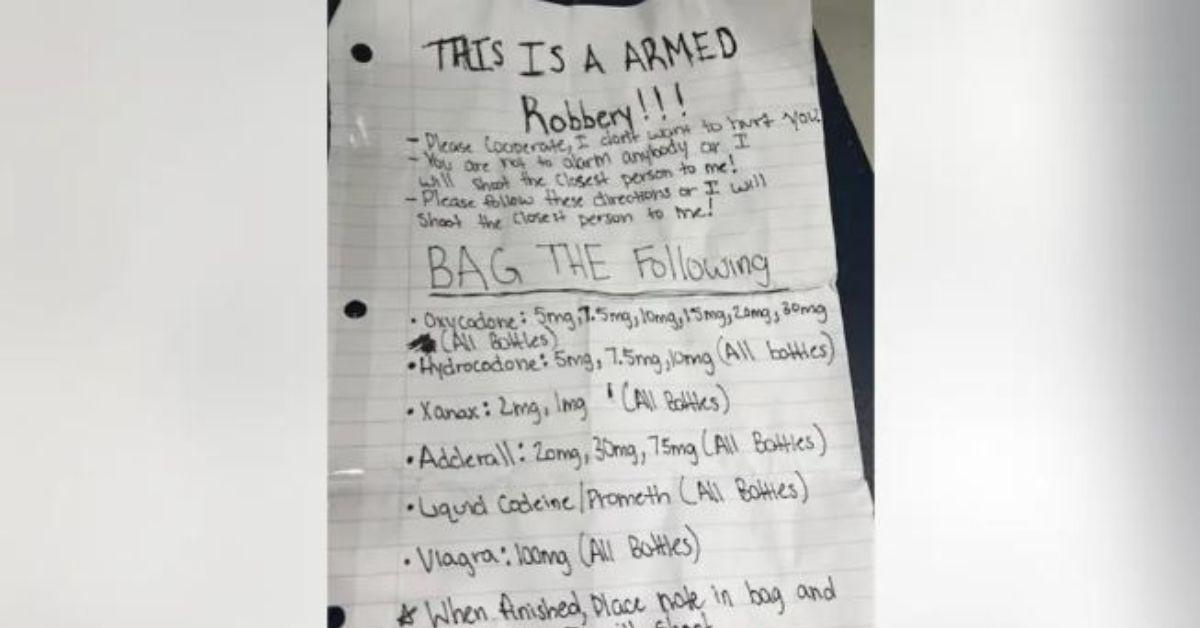 THIS IS A ARMED
Robbery!!!
- Please Cooperate, I don't want to hurt you.
- You are not to alarm anybody or I
will shoot the closest person to me!
- Please follow these directions or I will
shoot the closest person to me!
BAG THE Following
• Oxycodone: 5mg, 7.5mg, 10mg, 15mg, 20mg, 30mg
(All Bottles)
• Hydrocodone: 5mg, 7.5mg, 10mg (All bottles)
• Xanax: 2mg, 1mg (All Bottles)
• Adderall: 20mg, 30mg, 75mg (All Bottles)
• Liquid Codeine/Prometh (All Bottles)
• Viagra: 100mg (All Bottles)
☆ When finished, Place note in bag and
will shoot